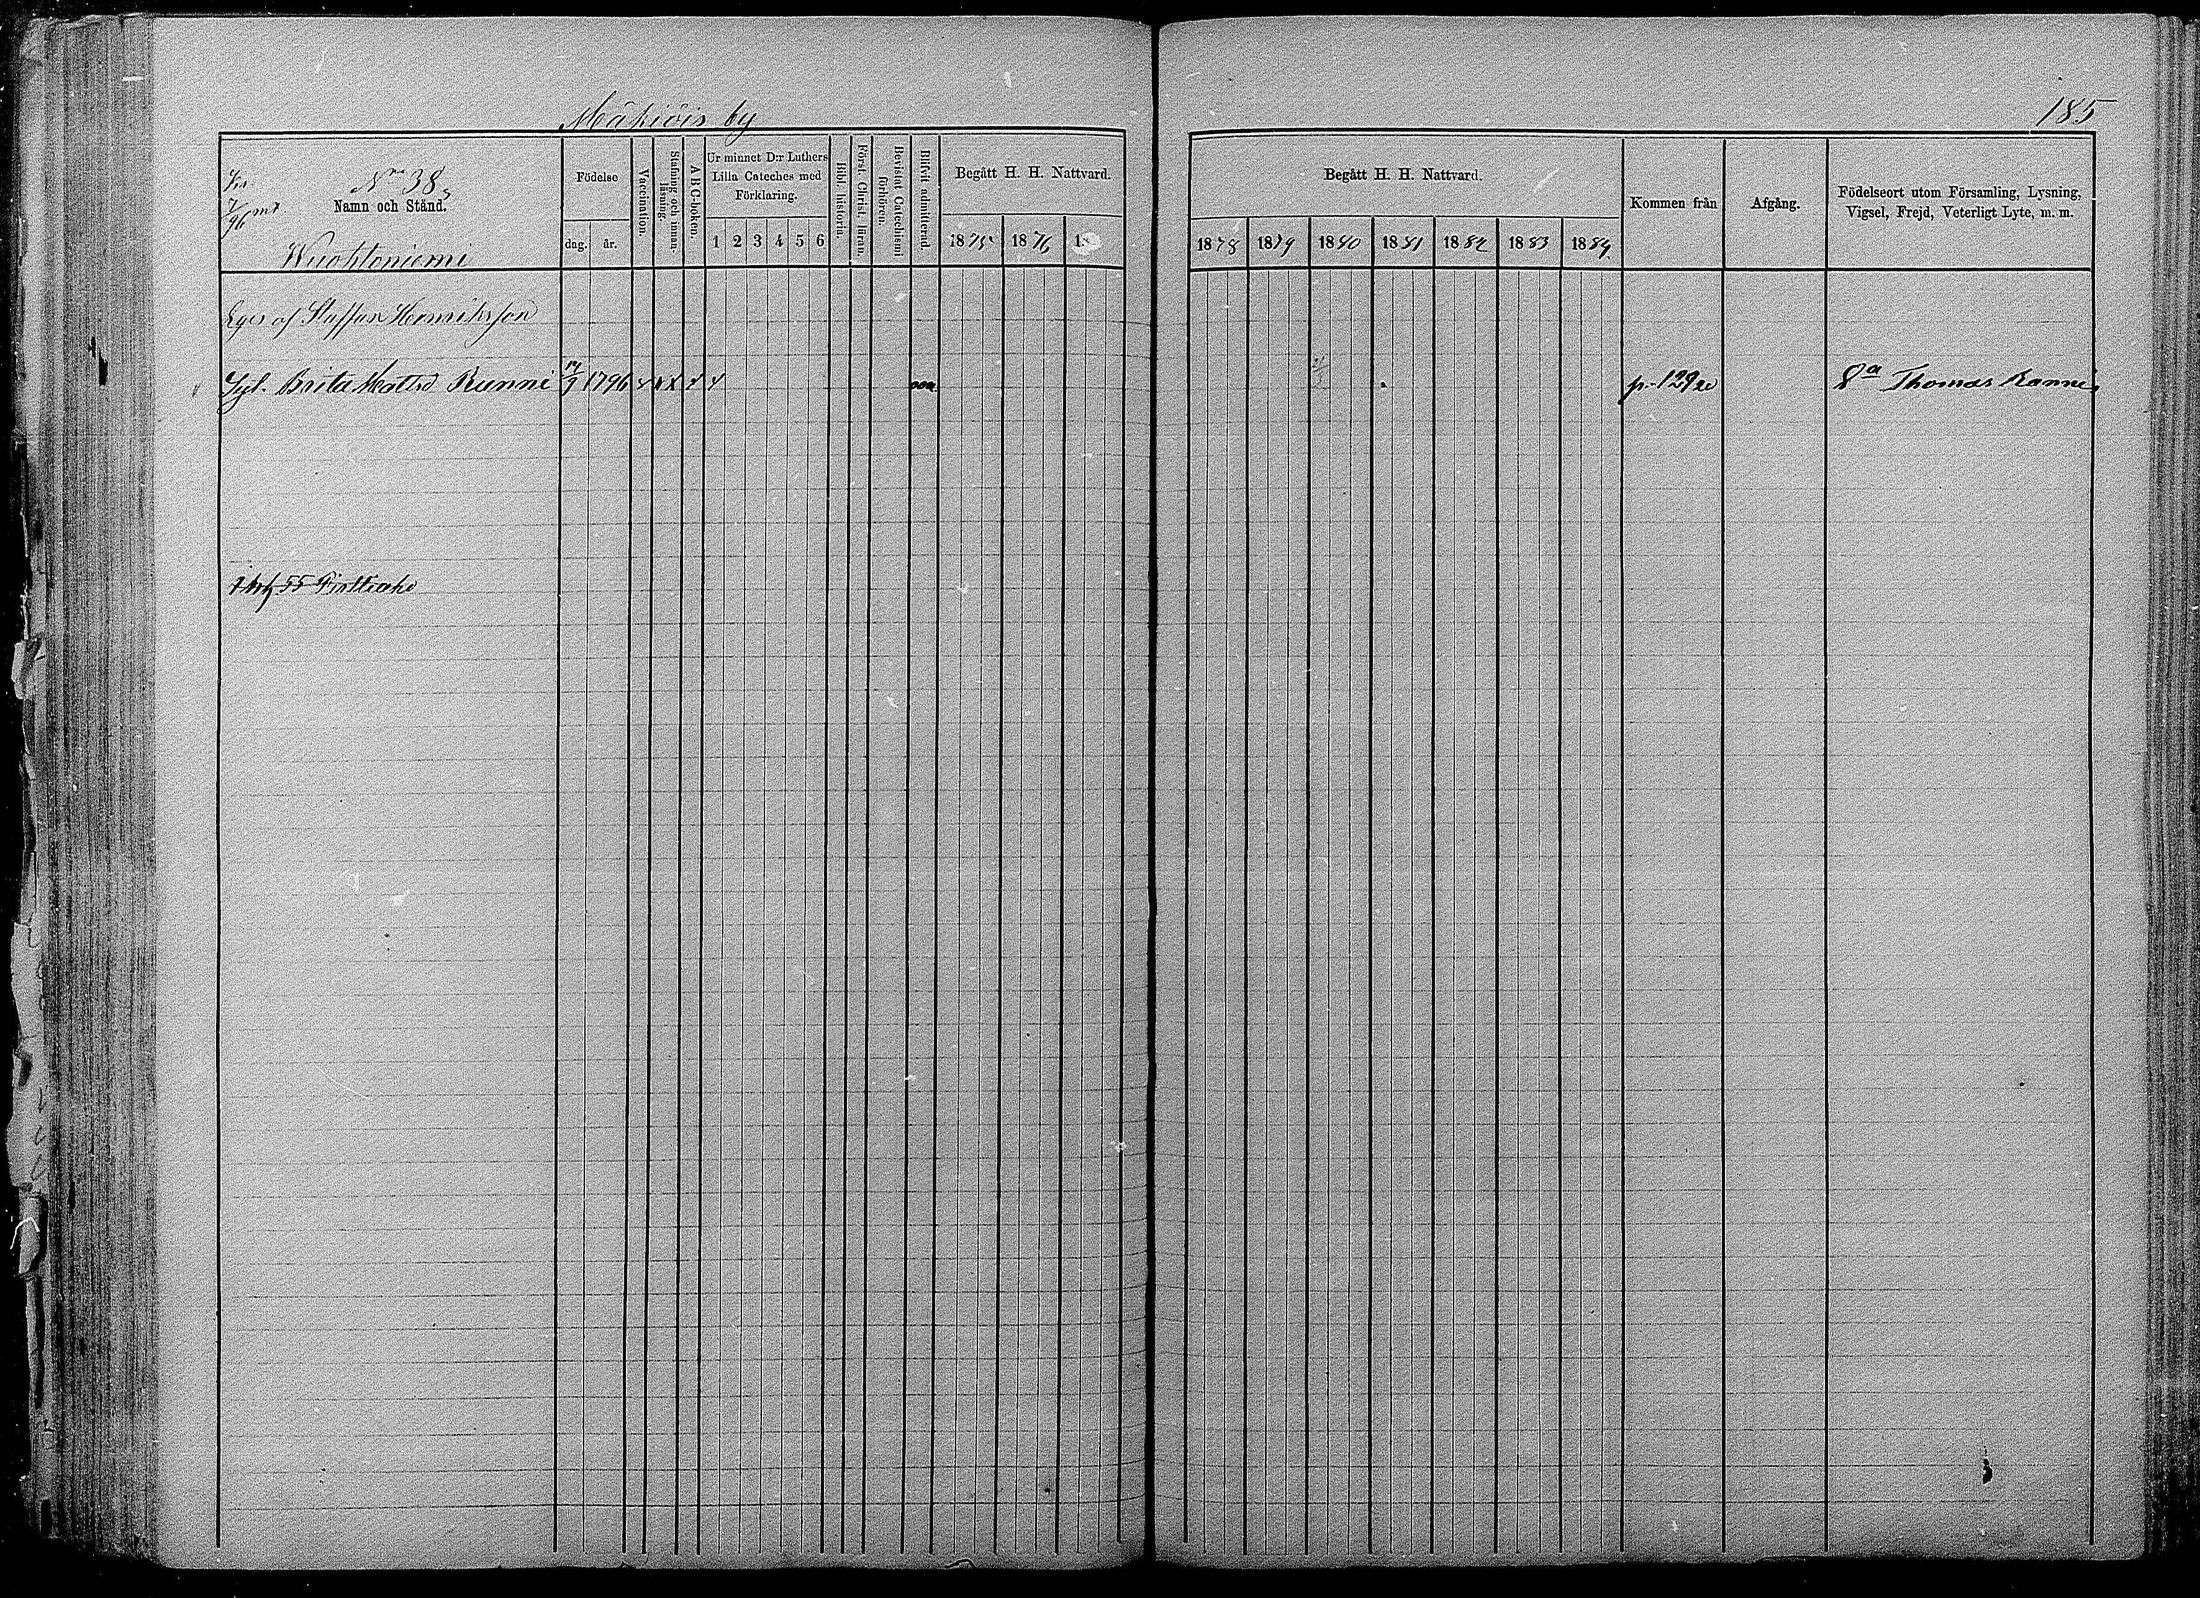 Mäkiöis by
185
Kr.
No 38
7/96 mt
Namn och Stånd.
Wuohtoniemi
Födelse
dag.
år.
Vaccination.
Stafning och innanläsning.
A B C-boken.
Ur minnet D:r Luthers
Lilla Cateches med
Förklaring.
1 2 3 4 5 6
Bibl. historia.
Först. Christ. läran.
Bevistat Catechismi förhören.
Blifvit admitterad.
Begått H. H. Nattvard.
1875 1876 1
Begått H. H. Nattvard.
1878 1879 1880 1881 1882 1883 1884
Kommen från
Afgång.
Födelseort utom Församling, Lysning,
Vigsel, Frejd, Veterligt Lyte, m. m.
Eges af Staffan Henriksson
Brita Matsd Runni 1796 x x x x x p. 129 Thomas Ranni